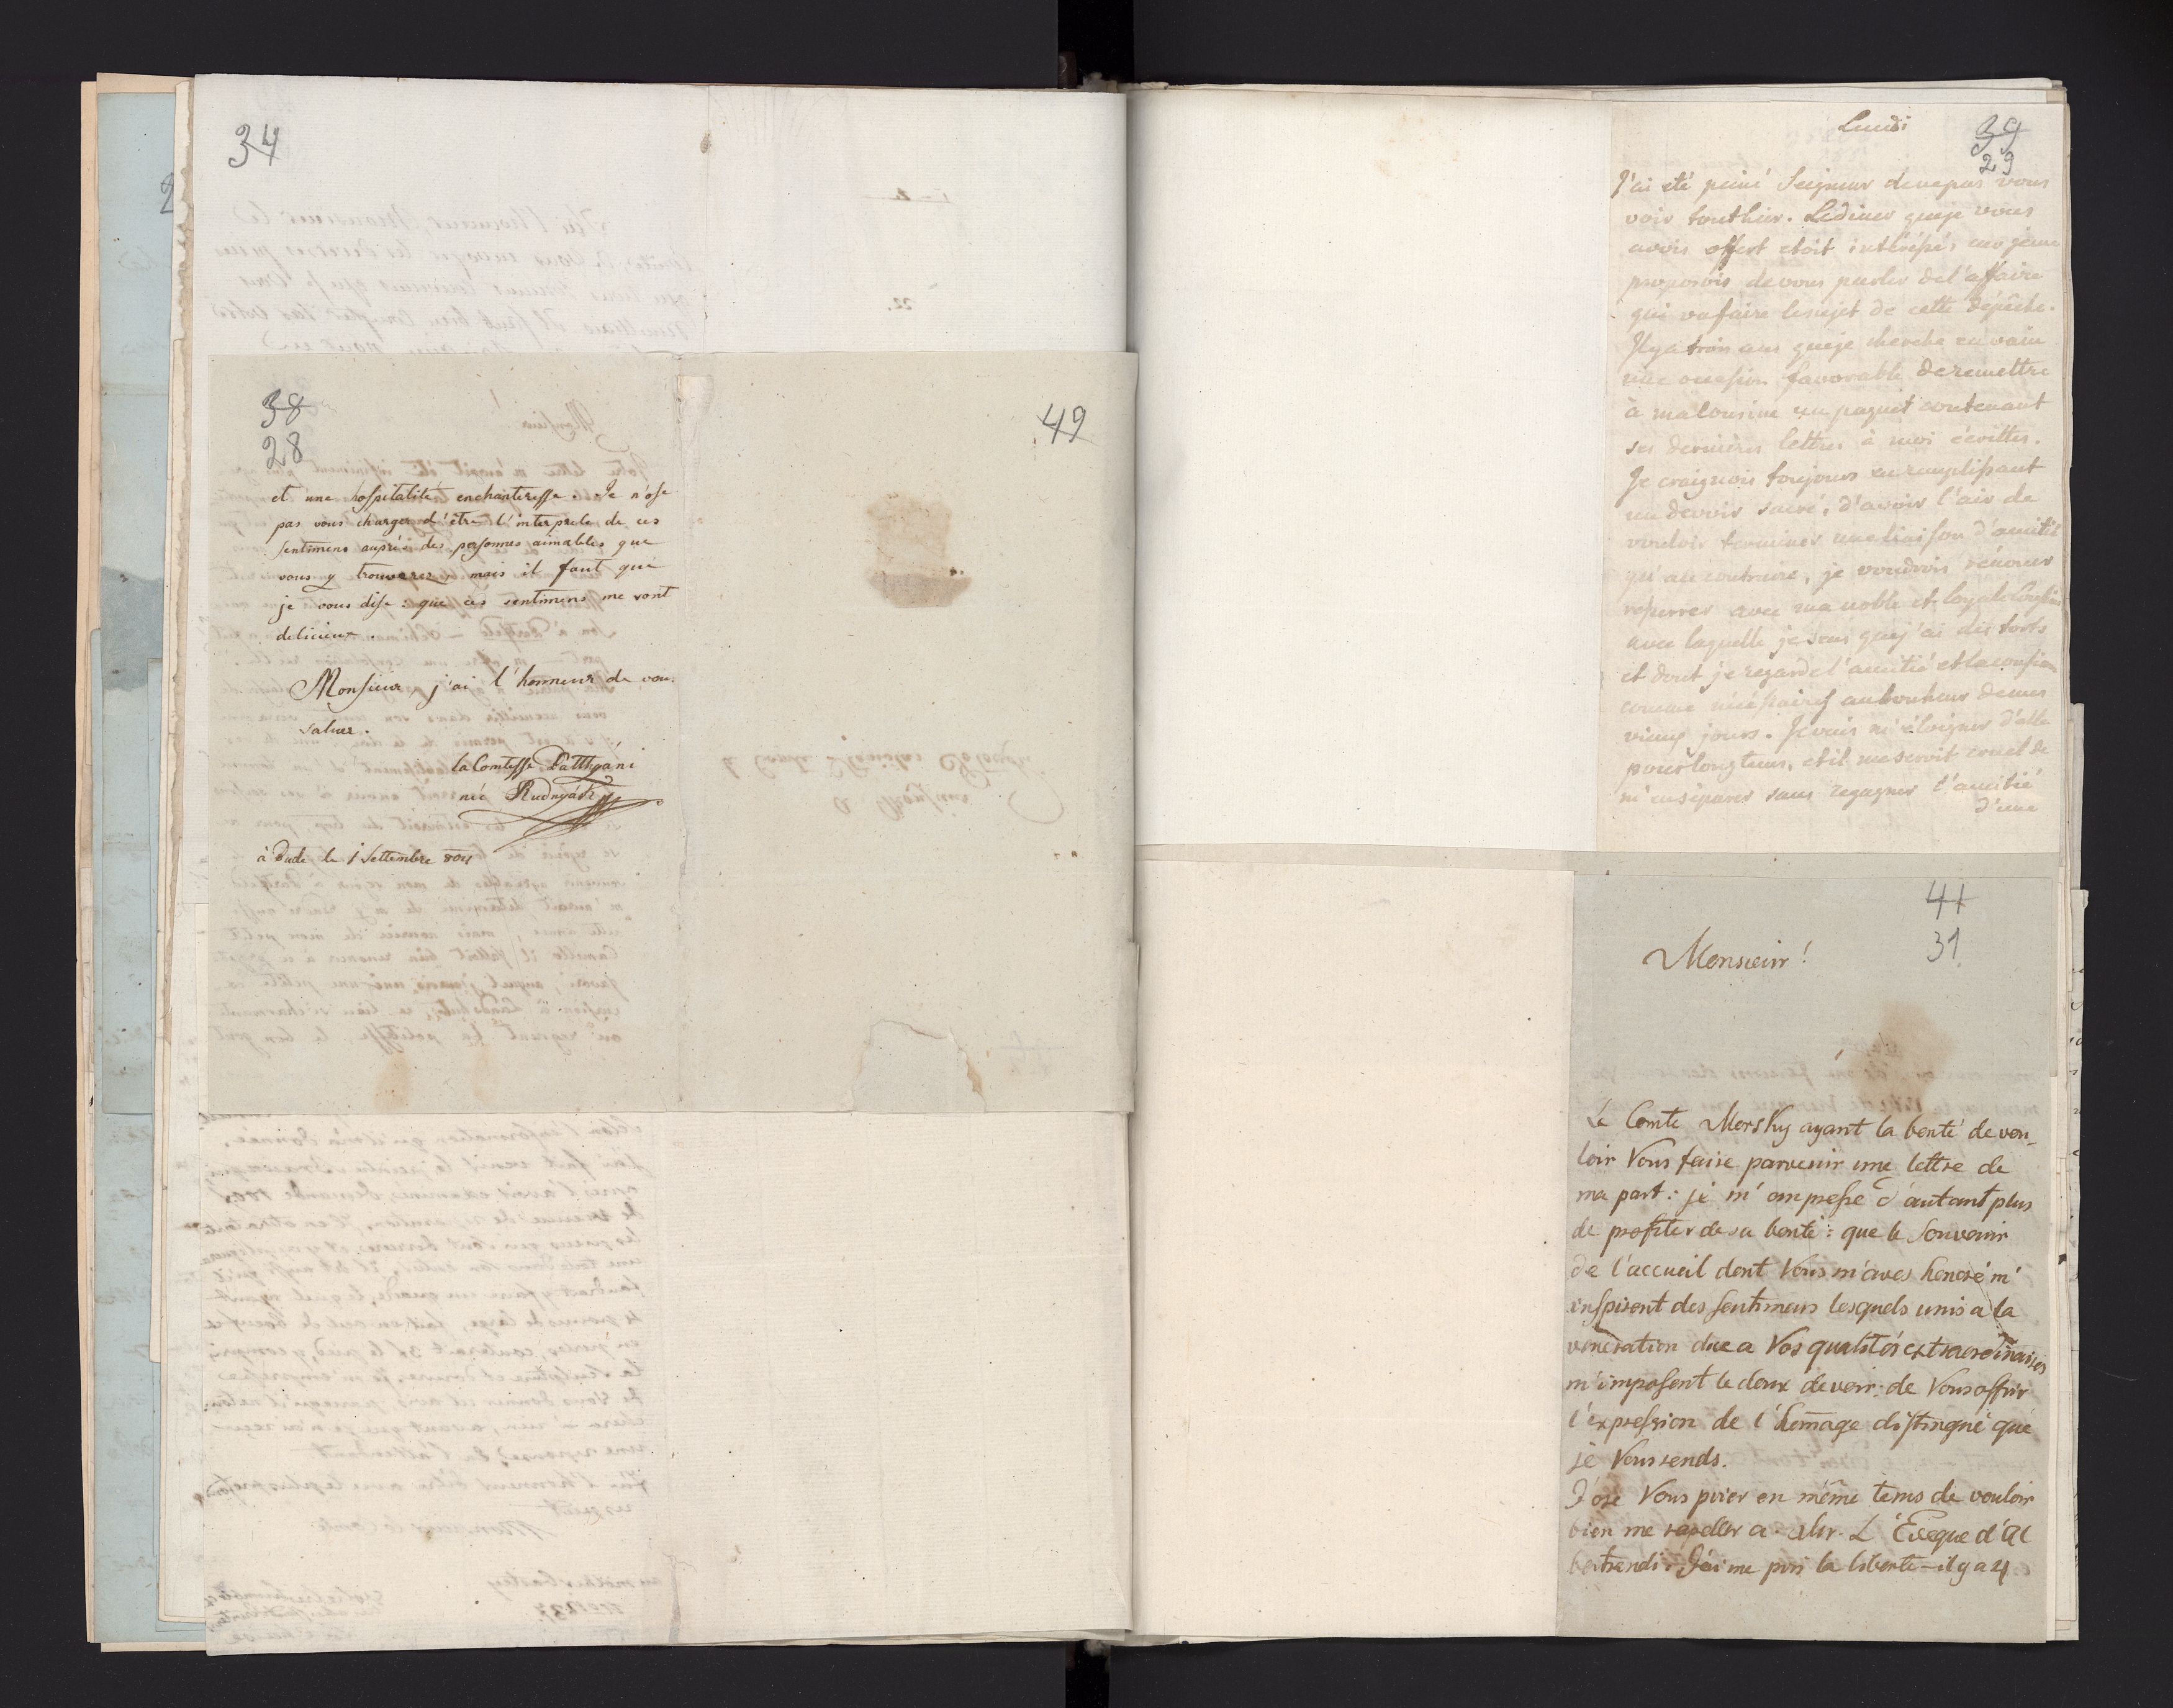 34
38
28
et une hospitalité enchanteresse. Je n'ose
pas vous charger d'être l'interprete de ces
sentimens auprès des personnes aimables que
vous y trouverez, mais il faut que
je vous dise: que ces sentimens me sont
delicieux.
Monsieur j'ai l'honneur de vous
saluer.
la Comtesse Batthyáni
née Rudnyák
à Bude le 1 Settembre 804
49
Lundi
39
29
J'ai été peiné Seigneur de ne pas vous
voir tout hier. Le diner que je vous
avois offert etoit intéressé; car je me
proposois de vous parler de l'affaire
qui va faire le sujet de cette depêche.
Il y a trois ans que je cherche en vain
une occasion favorable de remettre
à ma Cousine un paquet contenant
ses dernières lettres à moi écrittes.
Je craignois toujours en remplissant
un devoir sacré, d'avoir l'air de
vouloir terminer une liaison d'amitié
qu'au contraire, je voudrois rénouer
resserrer avec ma noble et loyale Cousine
avec laquelle je sens que j'ai des torts
et dont je regarde l'amitié et la confiance
comme nécéssaires au bonheur de mes
vieux jours. Je vais m'éloigner d'elle
pour longtems, et il me seroit cruel de
m'en séparer sans regagner l'amitié
d'une
41
31
Monsieur!
Le Comte Morsky ayant la bonté de vou-
loir Vous faire parvenir une lettre de
ma part: je m'empresse d'autant plus
de profiter de sa bonté: que le Souvenir
de l'accueil dont Vous m'aves honoré m'
inspirent des sentimens lesquels unis a la
veneration due a Vos qualités extraordinaires
m'imposent le doux devoir: de Vous offrir
l'expression de l'homage distingué que
je Vous rends.
J'ose Vous prier en même tems de vouloir
bien me rapeller a Mr. L'Eveque d'Al
bertrandi. J'ai me pris la liberté – il y a 4